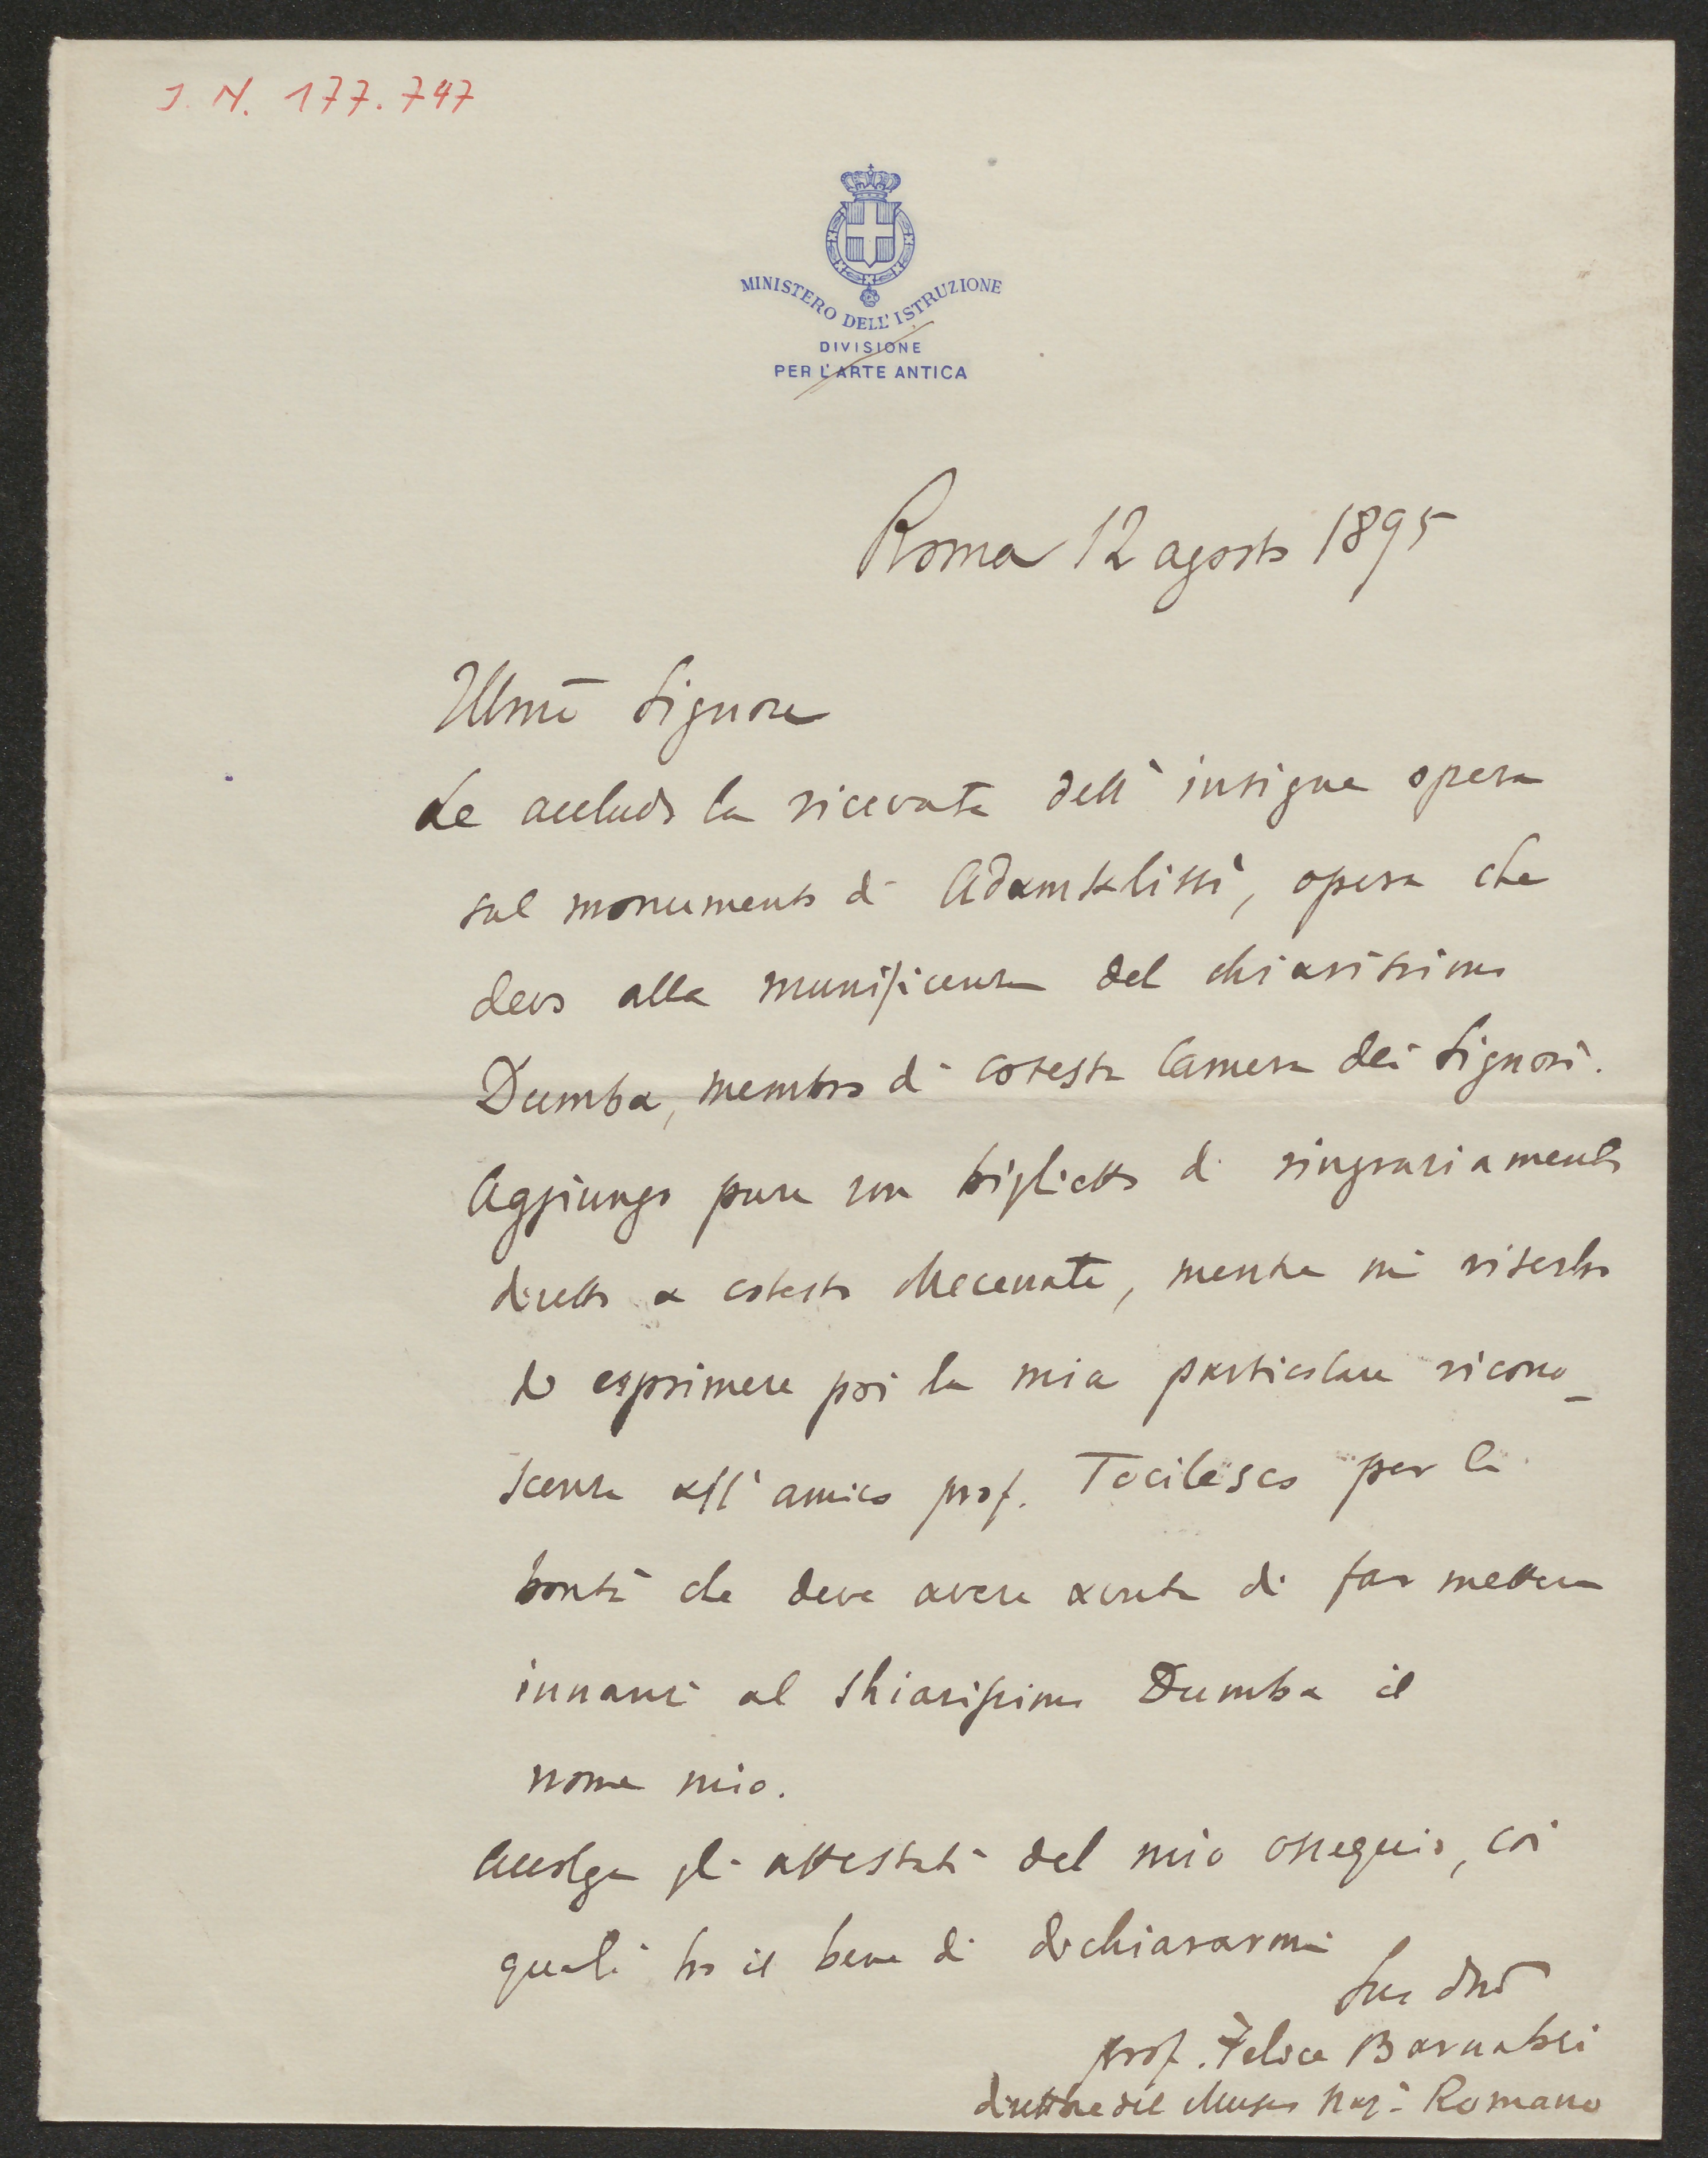 J. N. 177.747
MINISTERO DELL'ISTRUZIONE
DIVISIONE
PER L'ARTE ANTICA
Roma 12 agosto 1895
Illmo Signore
Le accludo la ricevuta dell' insigne opera
sul monumento di Adamklissi, opera che
devo alla munificenza del chiarissimo
Dumba, membro di cotesta Camera dei Signori.
Aggiungo pure un biglietto di ringraziamento
diretto a cotesto Mecenate, mentre mi riserbo
di esprimere poi la mia particolare ricono-
scenza all' amico prof. Tocilesco per la
bontà che deve avere avuta di far mettere
innanzi al chiarissimo Dumba il
nome mio.
Accolga gli attestati del mio ossequio, coi
quali ho il bene di dichiararmi
Suo dmo
prof. Felice Barnabei
direttore del Museo Naz. Romano